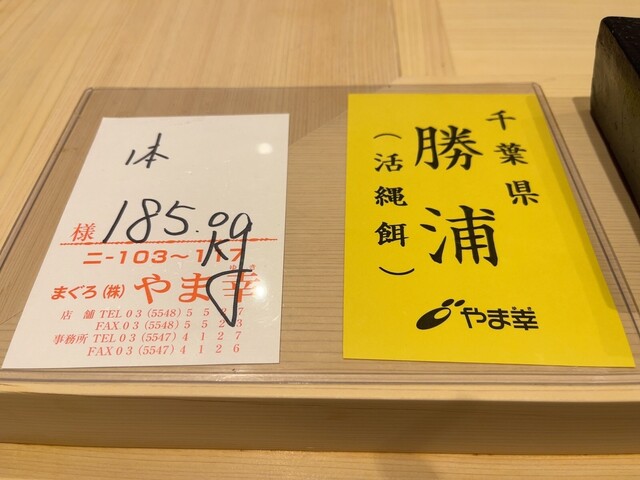 1本
185.00kg
様
ニ-103～117
まぐろ(株) やま幸
店舗 TEL 03 (5548) 5527
FAX 03 (5548) 5523
事務所 TEL 03 (5547) 4127
FAX 03 (5547) 4126
千葉県
勝浦
(活縄餌)
やま幸